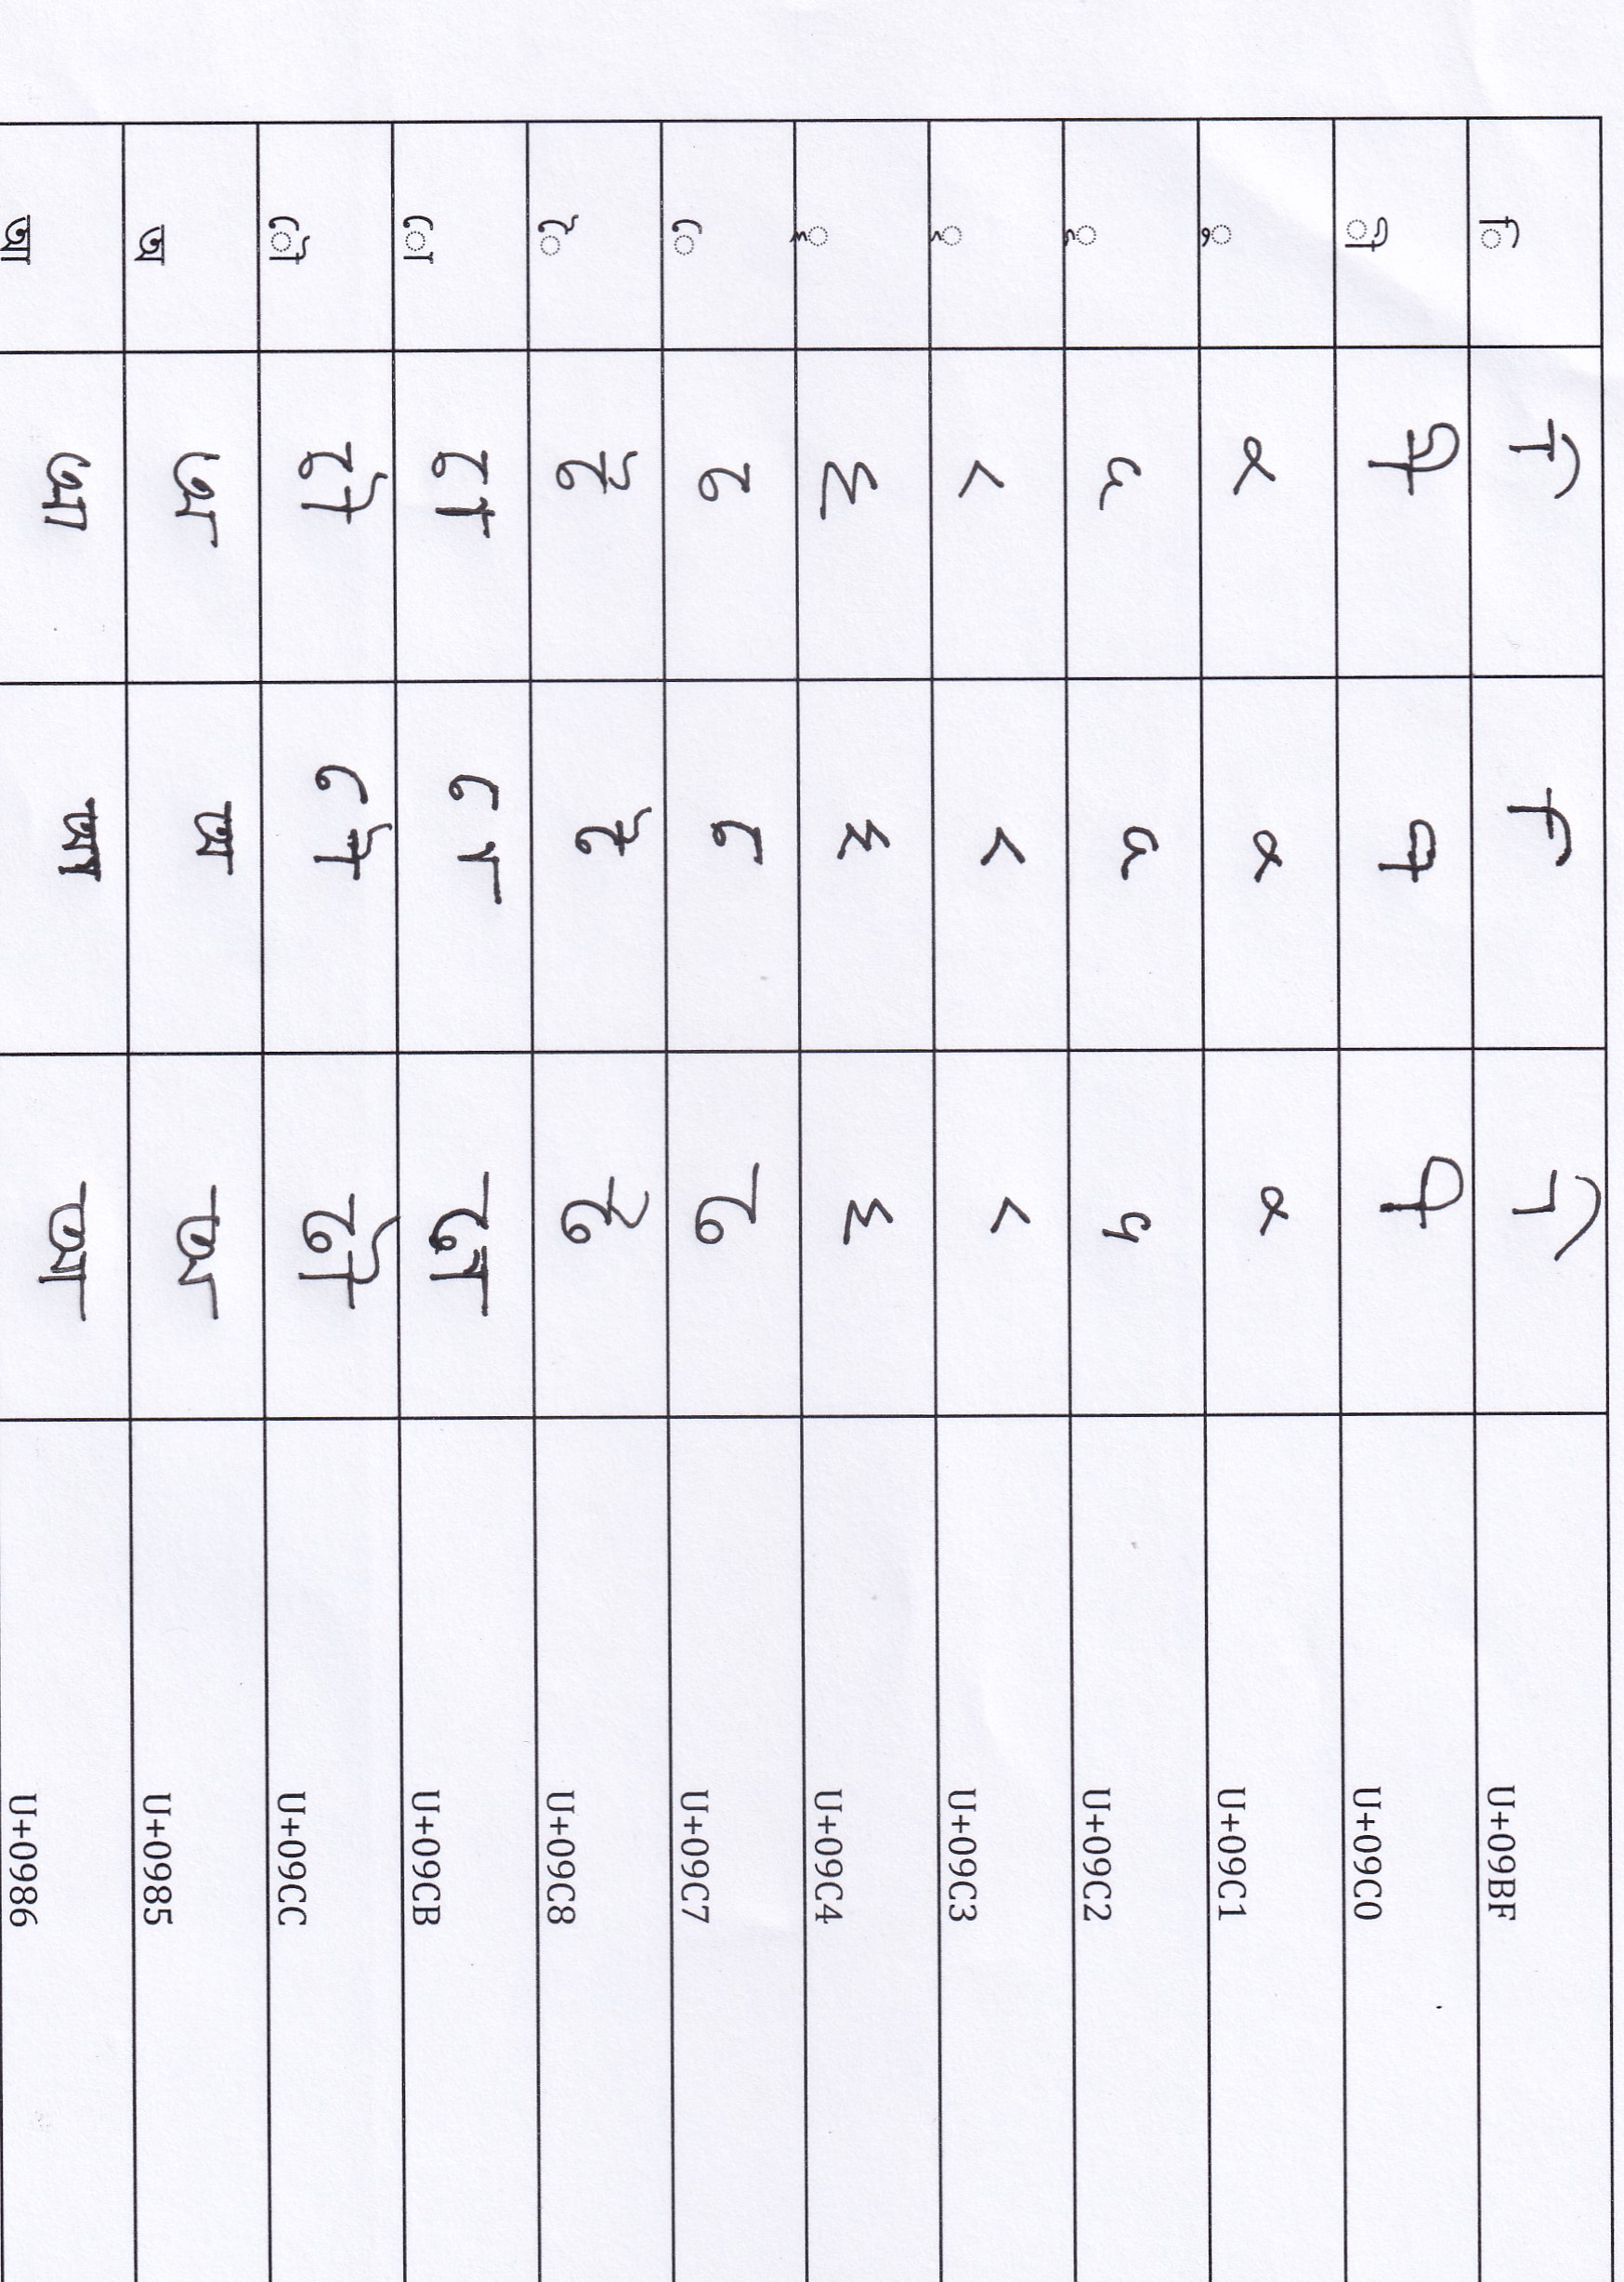 ি ি ি ি U+09BF
ী ী ী ী U+09C0
ু ু ু ু U+09C1
ূ ূ ূ ূ U+09C2
ৃ ৃ ৃ ৃ U+09C3
ৄ ৄ ৄ ৄ U+09C4
ে ে ে ে U+09C7
ৈ ৈ ৈ ৈ U+09C8
ো ো ো ো U+09CB
ৌ ৌ ৌ ৌ U+09CC
অ অ অ অ U+0985
আ আ আ আ U+0986